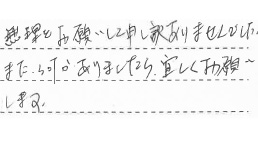 無理をお願いして申し訳ありませんでした。
また、何かありましたら、宜しくお願い
します。